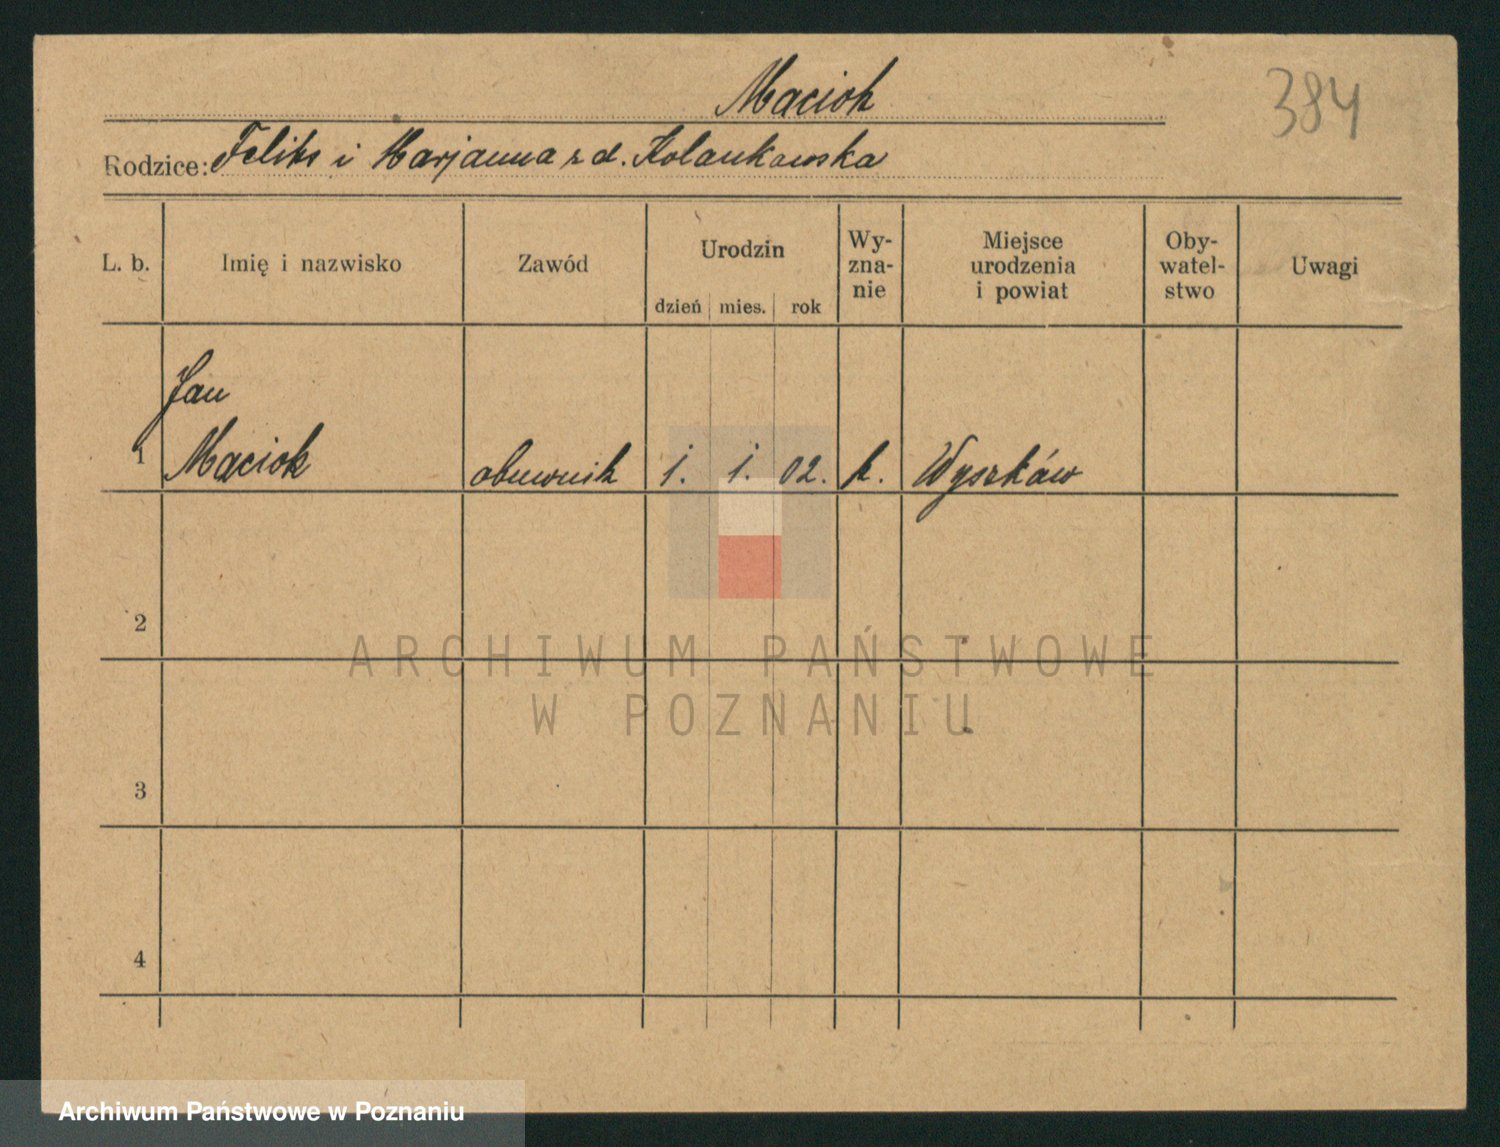 Maciok
384
Rodzice: Feliks i Marjanna z d. Kolankowska
L. b. Imię i nazwisko Zawód Urodzin dzień mies. rok Wy-zna-nie Miejsce urodzenia i powiat Oby-watel-stwo Uwagi
Jan
1 Maciok obuwnik 1. 1. 02. k. Wyszków
2
ARCHIWUM PAŃSTWOWE
W POZNANIU
3
4
Archiwum Państwowe w Poznaniu